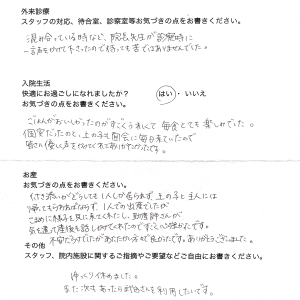 外来診療
スタッフの対応、待合室、診察室等お気づきの点をお書きください。
混み合っている時など、院長先生が診察時に
一声をかけて下さったので待っても苦ではありませんでした。
入院生活
快適にお過ごしになれましたか? はい ・ いいえ
お気づきの点をお書きください。
ごはんがおいしかったのがすごくうれしくて 毎食とても楽しみでした。
個室だったのと、上の子も面会に毎日来ていたので
皆さん優しい声をかけてくれてありがたかったです。
お産
お気づきの点をお書きください。
付き添いがどうしても1人しか居られず、上の子と主人には
帰ってもらわねばならず、1人での出産でしたが
こまめに様子を見に来てくれたし、助産師さんが
気を遣って産後も話しかけてくれたのですごく心強かったです。
不安だらけでしたがあたたかい方々で良かったです。ありがとうございました。
その他
スタッフ、院内施設に関するご指摘やご要望などご自由にお書きください。
ゆっくり休めました。
また次もあったら利用したいです。